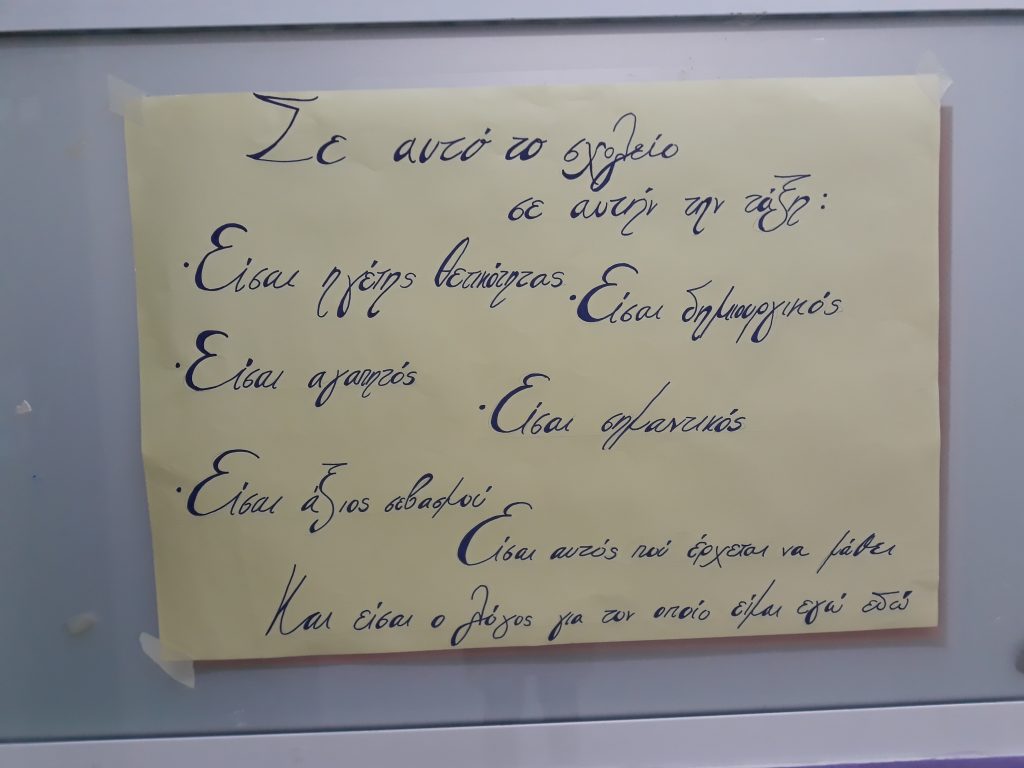 Σε αυτό το σχολείο
σε αυτήν την τάξη:
· Είσαι ηγέτης θετικότητας
· Είσαι δημιουργικός
· Είσαι αγαπητός
· Είσαι σημαντικός
· Είσαι άξιος σεβασμού
Είσαι αυτός πού έρχεται να μάθει
Και είσαι ο λόγος για τον οποίο είμαι εγώ εδώ